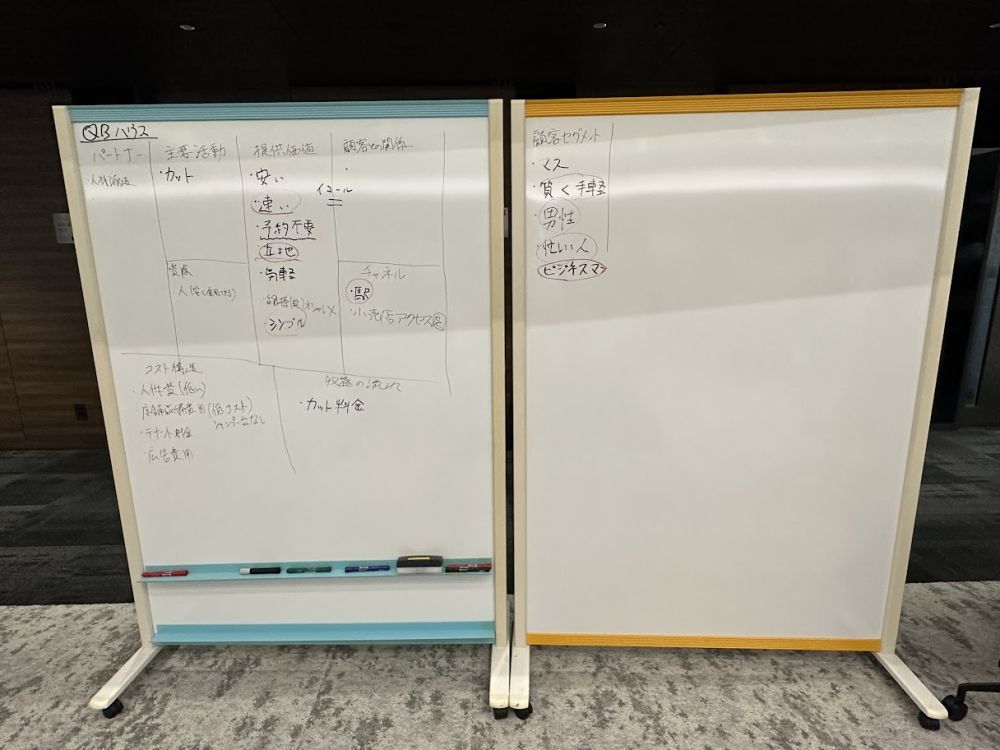 QBハウス
パートナー
・人材派遣
主要活動
・カット
資源
人(安く雇用できる)
提供価値
・安い
・速い
・予約不要
・立地
・気軽
・シンプル
イコール
=
顧客との関係
・
チャネル
・駅
・小売店アクセス
コスト構造
・人件費(低い)
・店舗設備費用(低コスト)
シャンプー台なし
・テナント料金
・広告費用
収益の流れ
・カット料金
顧客セグメント
・マス
・質<手軽
・男性
・忙しい人
・ビジネスマン